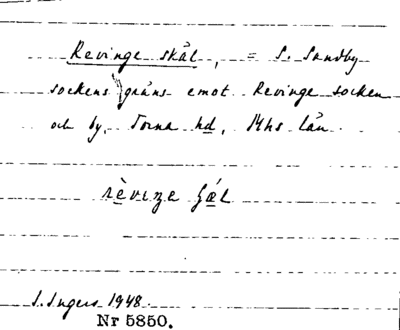 Revinge skäl, = S. Sandby
sockens gräns emot Revinge socken
och by, Torna hd, Mhs län.
rèvıŋe
I. Ingers 1948.
Nr 5850.